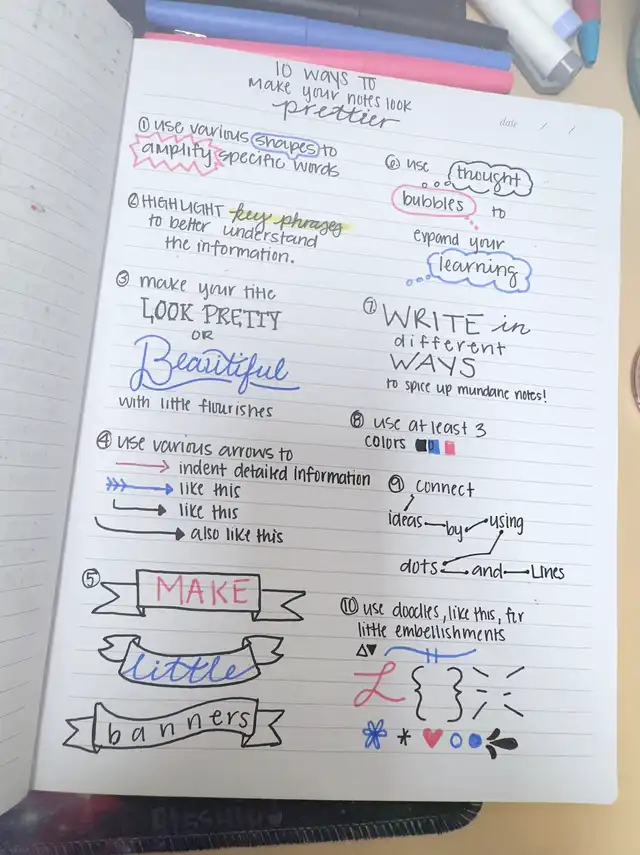 10 WAYS TO
make your notes look
prettier
date / /
① use various shapes to
amplify specific words
② HIGHLIGHT key phrases
to better understand
the information.
③ make your title
LOOK PRETTY
OR
Beautiful
with little flourishes
④ use various arrows to
indent detailed information
like this
like this
also like this
⑤ MAKE
little
banners
⑥ use thought
bubbles to
expand your
learning
⑦ WRITE in
different
WAYS
to spice up mundane notes!
⑧ use at least 3
colors
⑨ connect
ideas by using
dots and Lines
⑩ use doodles, like this, for
little embellishments
L { }